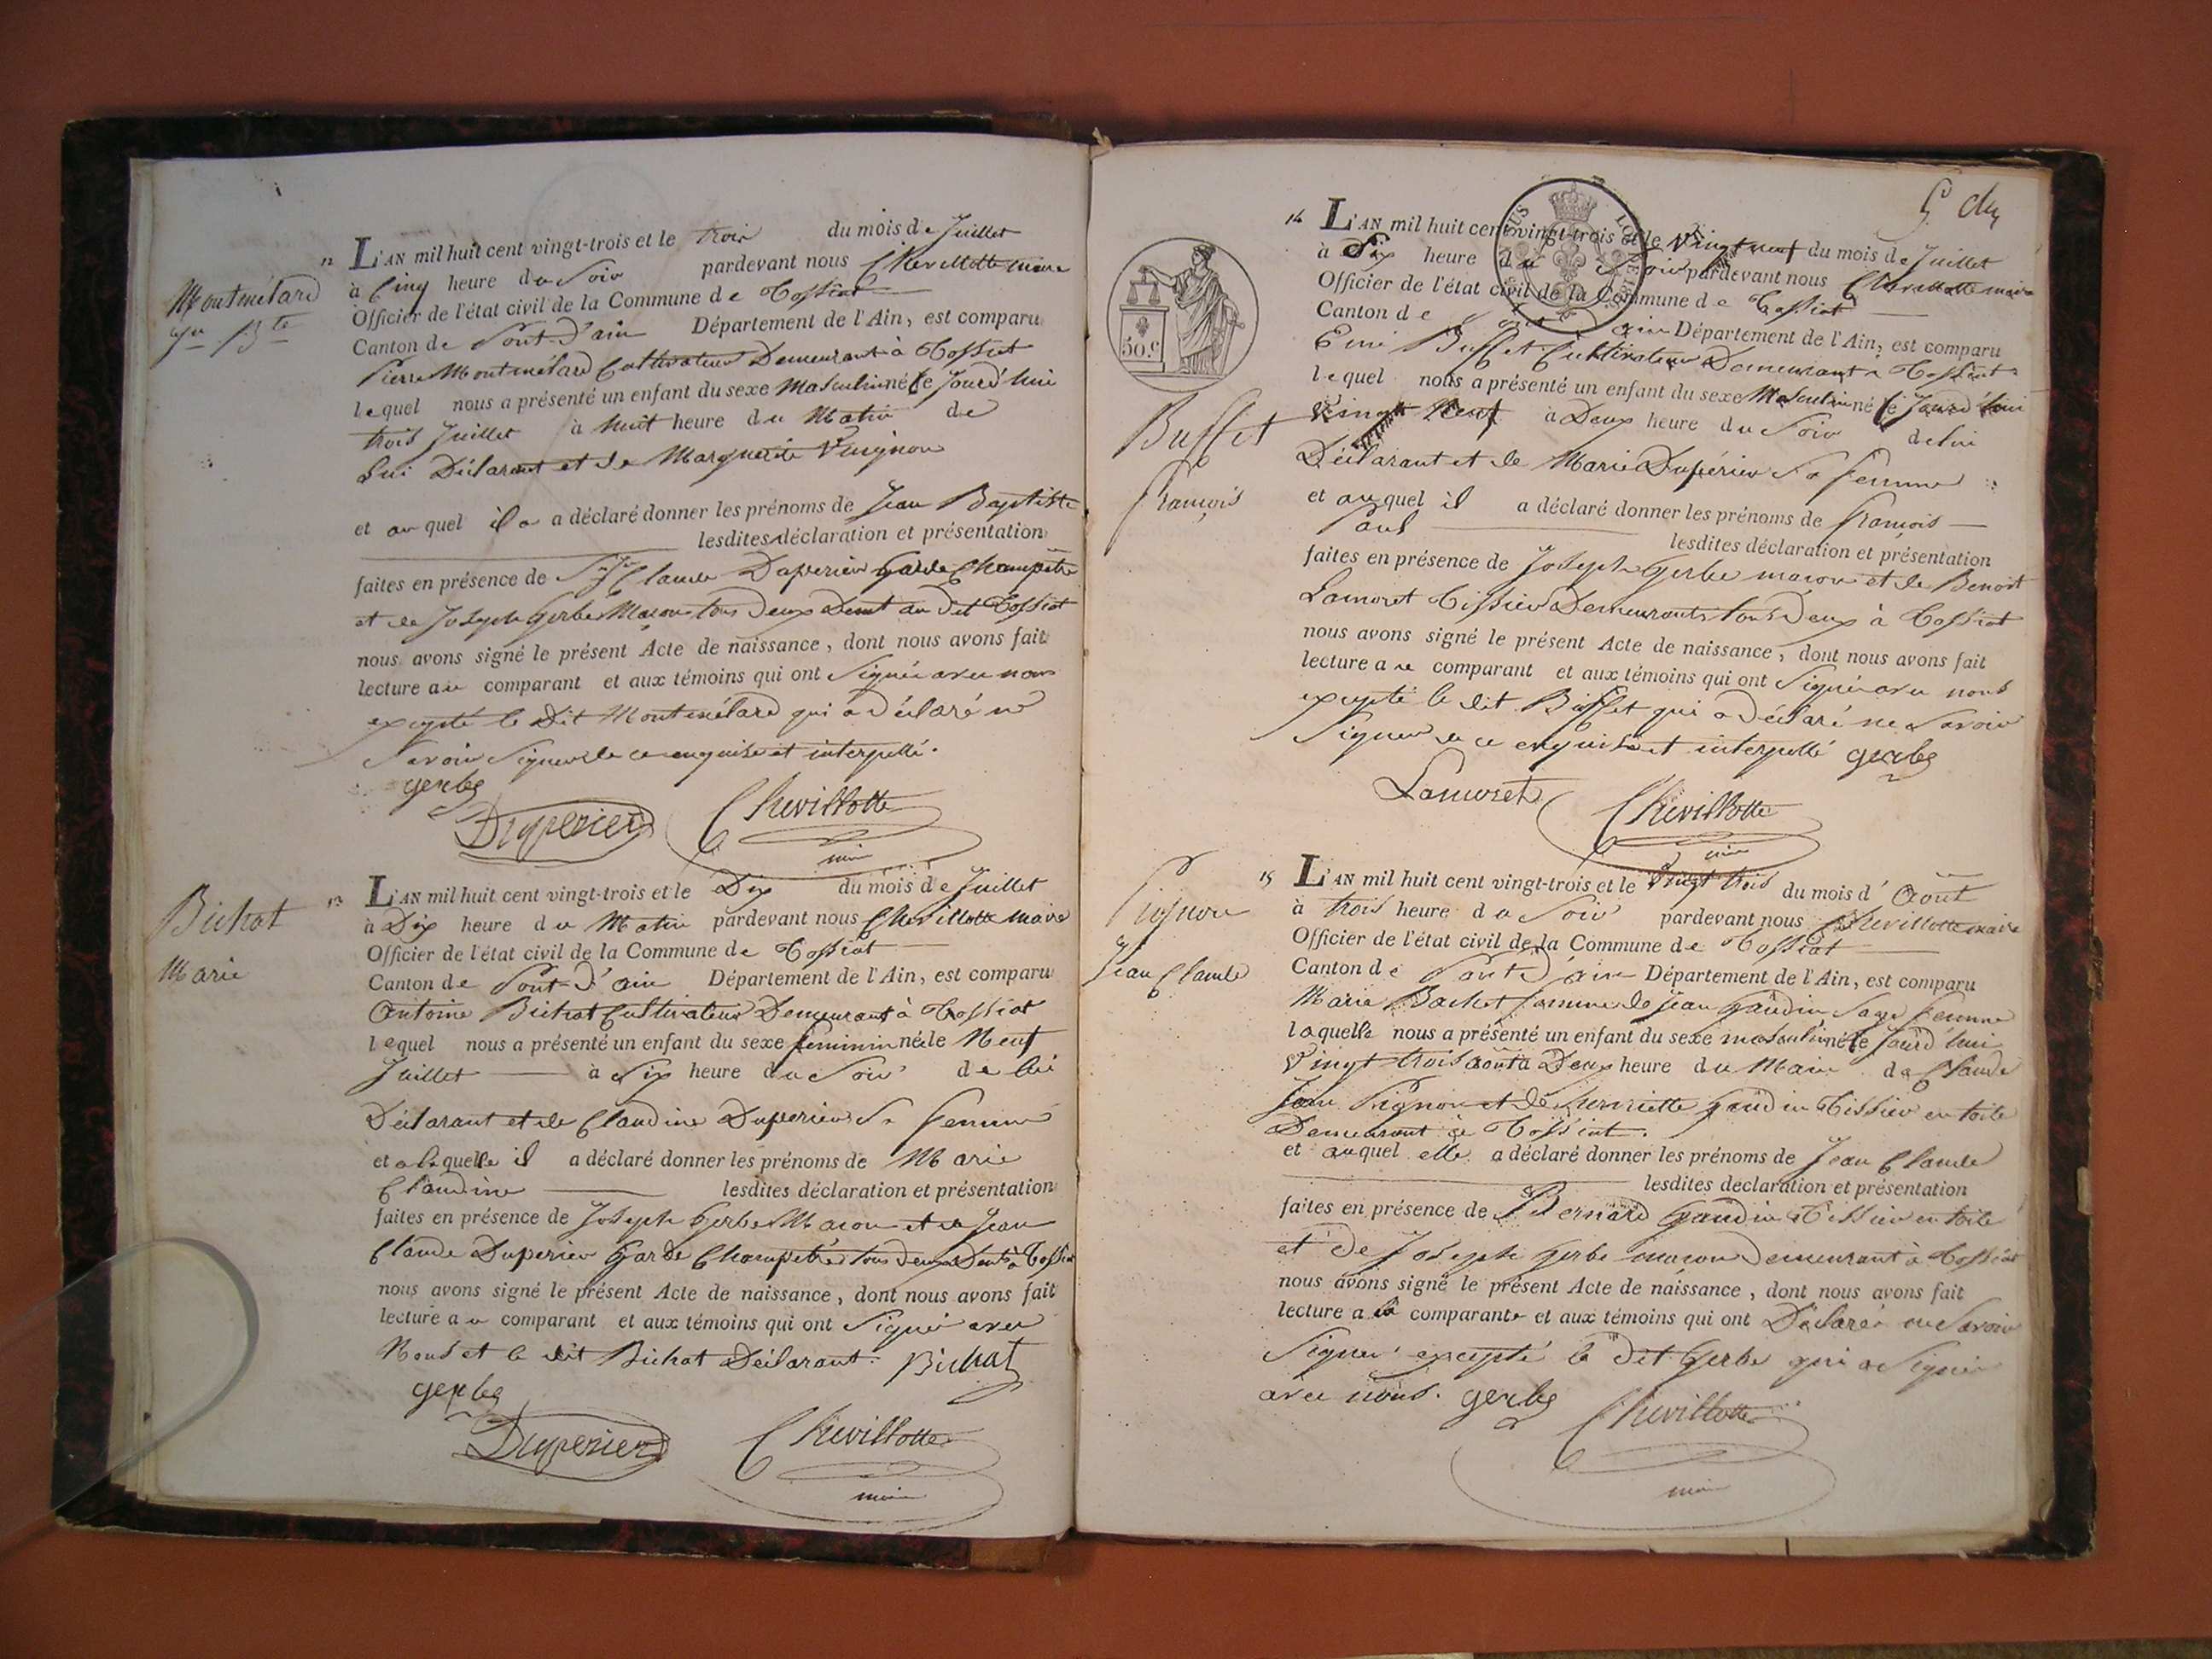 Montmélard
Jn Bte
12 L'AN mil huit cent vingt-trois et le trois du mois de Juillet
à Cinq heure du Soir pardevant nous Chevillotte maire
Officier de l'état civil de la Commune de Tossiat
Canton de Pont-d'ain Département de l'Ain, est comparu
Pierre Montmélard Cultivateur Demeurant à Tossiat
lequel nous a présenté un enfant du sexe Masculin né le Jourd'hui
trois Juillet à huit heure du Matin de
Lui Déclarant et de Marguerite Vuignon
et auquel il a a déclaré donner les prénoms de Jean Baptiste
lesdites déclaration et présentation
faites en présence de Claude Duperier Garde Champêtre
et de Joseph Gerbe Macon tous deux Demt au dit Tossiat
nous avons signé le présent Acte de naissance, dont nous avons fait
lecture au comparant et aux témoins qui ont Signé avec nous
excepté le Dit Montmélard qui a déclaré ne
Savoir Signer de ce enquise et interpellé.
gerbe
Duperier Chevillotte
maire
Bichat
Marie
13 L'AN mil huit cent vingt-trois et le Dix du mois de Juillet
à Dix heure du Matin pardevant nous Chevillotte Maire
Officier de l'état civil de la Commune de Tossiat
Canton de Pont-d'ain Département de l'Ain, est comparu
Antoine Bichat Cultivateur Demeurant à Tossiat
lequel nous a présenté un enfant du sexe feminin née le Neuf
Juillet à Six heure du Soir de lui
Déclarant et de Claudine Duperier Sa femme
et a laquelle il a déclaré donner les prénoms de Marie
Claudine lesdites déclaration et présentation
faites en présence de Joseph Gerbe Macon et de Jean
Claude Duperier Garde Champêtre tous deux Demt à Tossiat
nous avons signé le présent Acte de naissance, dont nous avons fait
lecture au comparant et aux témoins qui ont Signé avec
Nous et le dit Bichat Déclarant. Bichat
gerbe
Duperier Chevillotte
maire
50.c
Buffet
François
14 L'AN mil huit cent vingt-trois et le Vingt neuf du mois de Juillet
à Six heure du Soir pardevant nous Chevillotte maire
Officier de l'état civil de la Commune de Tossiat
Canton de Pont d'ain Département de l'Ain, est comparu
Buffet Cultivateur Demeurant à Tossiat
lequel nous a présenté un enfant du sexe Masculin né le Jourd'hui
Vingt Neuf à Deux heure du Soir de lui
Déclarant et de Marie Dupérier Sa femme
et auquel il a déclaré donner les prénoms de François
Paul lesdites déclaration et présentation
faites en présence de Joseph Gerbe macon et de Benoit
Lamoret Tissier Demeurants tous Deux à Tossiat
nous avons signé le présent Acte de naissance, dont nous avons fait
lecture au comparant et aux témoins qui ont Signé avec nous
excepté le dit Buffet qui a déclaré ne Savoir
Signer de ce enquise et interpellé gerbe
Lamoret Chevillotte
maire
Pignon
Jean Claude
15 L'AN mil huit cent vingt-trois et le Vingt trois du mois d'Août
à trois heure du Soir pardevant nous Chevillotte maire
Officier de l'état civil de la Commune de Tossiat
Canton de Pont d'ain Département de l'Ain, est comparu
Marie Bachet femme de Jean Gaudin Sage femme
laquelle nous a présenté un enfant du sexe masculin né le Jourd'hui
Vingt trois août à Deux heure du Matin de Claude
Jean Pignon et de henriette Gaudin Tissier en toile
Demeurant à Tossiat.
et auquel elle a déclaré donner les prénoms de Jean Claude
lesdites declaration et présentation
faites en présence de Bernard Gaudin Tissier en toile
et de Joseph Gerbe macon Demeurant à Tossiat
nous avons signé le présent Acte de naissance, dont nous avons fait
lecture a la comparante et aux témoins qui ont Déclaré ne Savoir
Signer excepté le Dit Gerbe qui a Signé
avec nous. gerbe
Chevillotte
maire